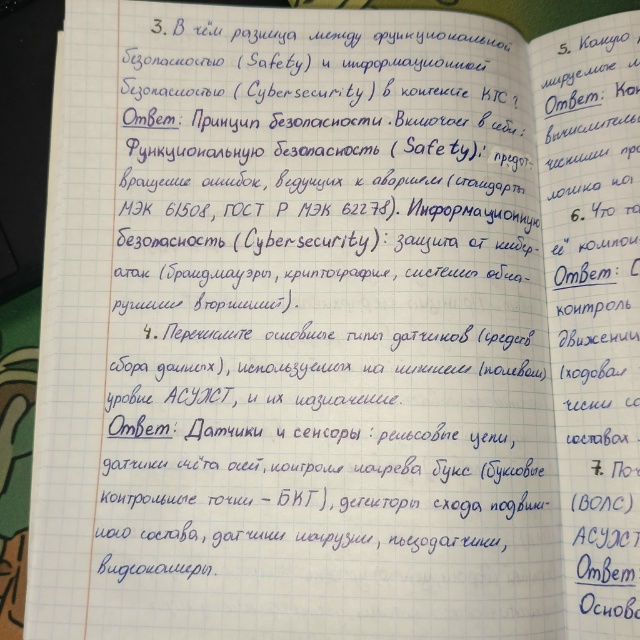 3. В чём разница между функциональной
безопасностью (Safety) и информационной
безопасностью (Cybersecurity) в контексте КТС?
Ответ: Принцип безопасности. Включает в себя:
Функциональную безопасность (Safety): предот-
вращение ошибок, ведущих к авариям (стандарты
МЭК 61508, ГОСТ Р МЭК 62278). Информационную
безопасность (Cybersecurity): защита от кибер-
атак (брандмауэры, криптография, системы обна-
ружения вторжений).
4. Перечислите основные типы датчиков (средств
сбора данных), используемых на нижнем (полевом)
уровне АСУЖТ, и их назначение.
Ответ: Датчики и сенсоры: рельсовые цепи,
датчики счёта осей, контроля нагрева букс (буксовые
контрольные точки – БКТ), детекторы схода подвиж-
ного состава, датчики нагрузки, пьезодатчики,
видеокамеры.
5. Какую
мируемые
Ответ:
вычислительн
ческими
логика
6. Что
её
Ответ: С
контроль
движени
(ходовая
чески
составах
7.
(ВОЛС)
АСУЖТ
Ответ:
Основ